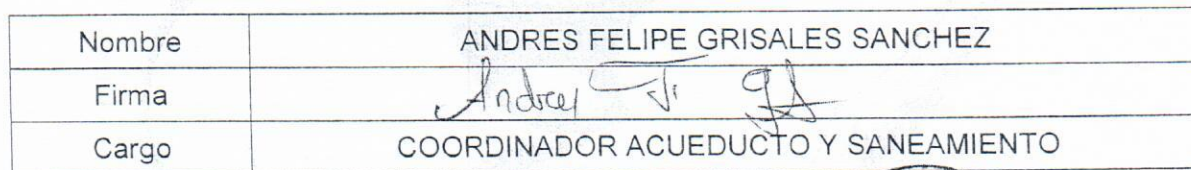 Nombre ANDRES FELIPE GRISALES SANCHEZ
Firma Andres F.
Cargo COORDINADOR ACUEDUCTO Y SANEAMIENTO